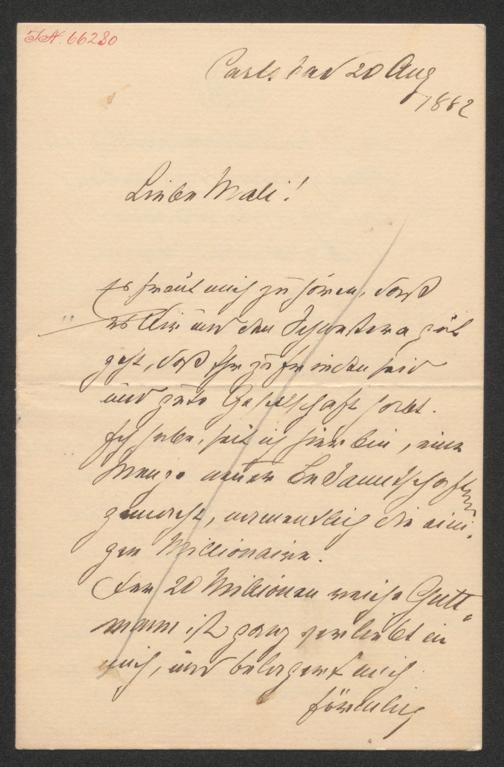 I.N. 66280
Carlsbad 20 Aug
1882
Liebe Mali!
Es freut mich zu hören, daß
es Dir und den Schwestern gut
geht, daß Ihr zufrieden seid
und gute Gesellschaft habt.
Ich habe, seit ich hier bin, eine
Menge neuer Bekanntschaften
gemacht, namentlich die eini-
gen Millionaire.
Der 20 Millionen reiche Gutt-
mann ist ganz verliebt in
mich, und belagert mich
förmlich